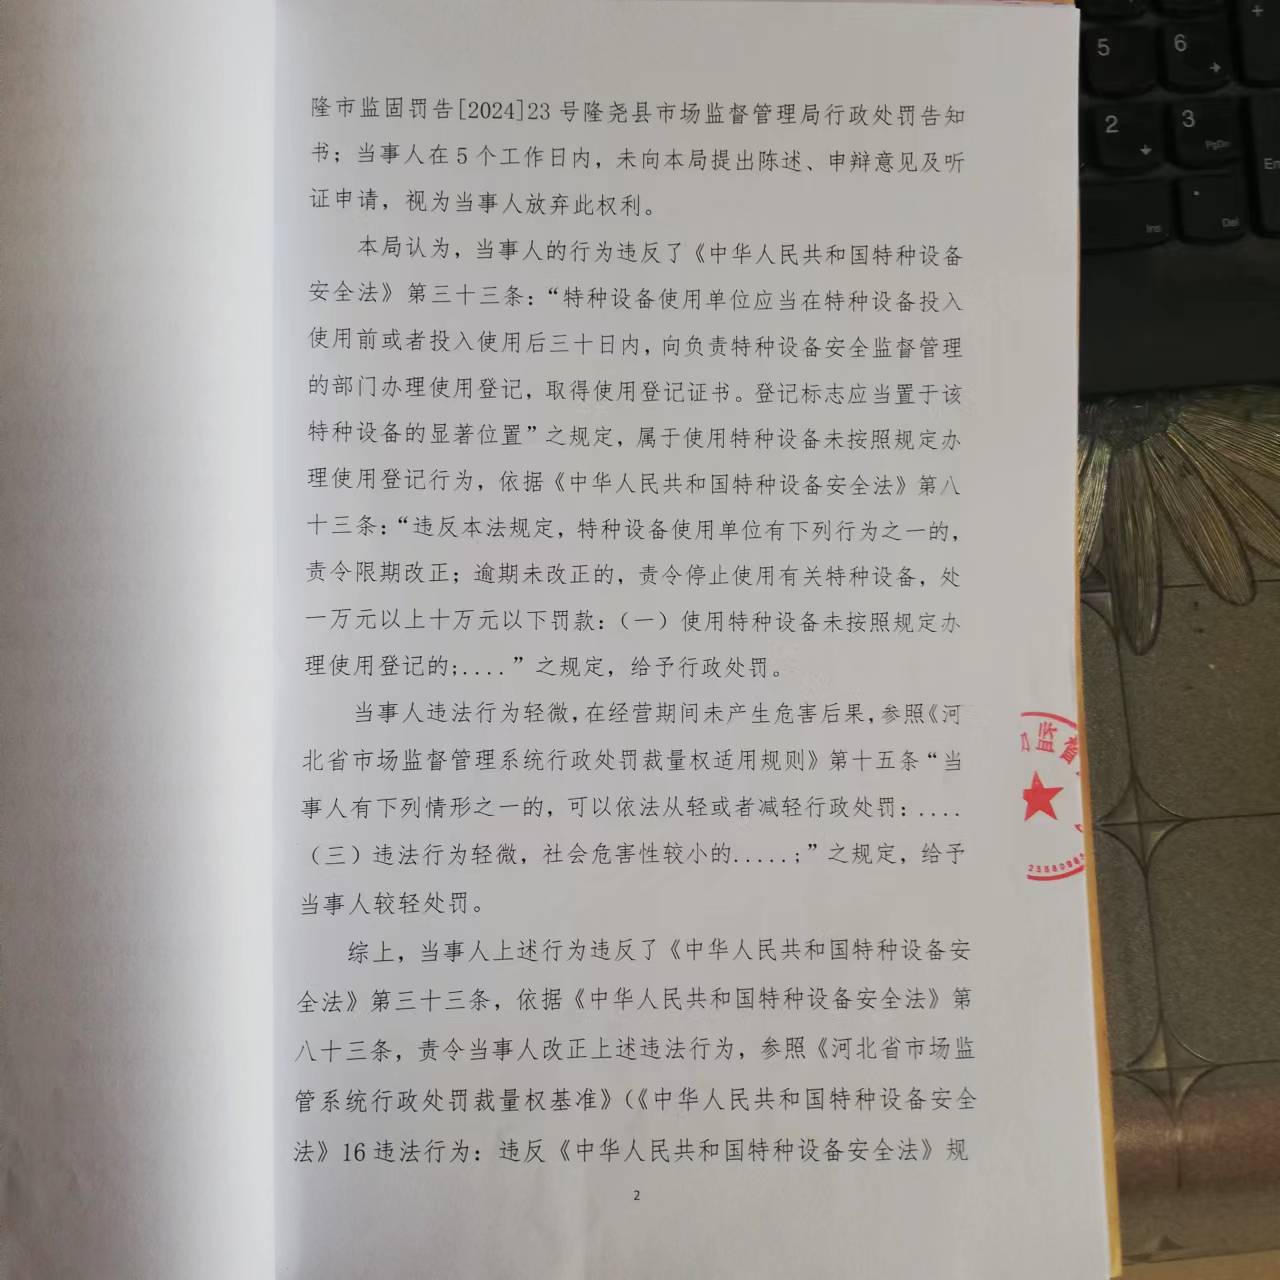 隆市监固罚告[2024]23 号隆尧县市场监督管理局行政处罚告知
书；当事人在 5 个工作日内，未向本局提出陈述、申辩意见及听
证申请，视为当事人放弃此权利。
本局认为，当事人的行为违反了《中华人民共和国特种设备
安全法》第三十三条：“特种设备使用单位应当在特种设备投入
使用前或者投入使用后三十日内，向负责特种设备安全监督管理
的部门办理使用登记，取得使用登记证书。登记标志应当置于该
特种设备的显著位置”之规定，属于使用特种设备未按照规定办
理使用登记行为，依据《中华人民共和国特种设备安全法》第八
十三条：“违反本法规定，特种设备使用单位有下列行为之一的，
责令限期改正；逾期未改正的，责令停止使用有关特种设备，处
一万元以上十万元以下罚款：（一）使用特种设备未按照规定办
理使用登记的;....”之规定，给予行政处罚。
当事人违法行为轻微，在经营期间未产生危害后果，参照《河
北省市场监督管理系统行政处罚裁量权适用规则》第十五条“当
事人有下列情形之一的，可以依法从轻或者减轻行政处罚：....
（三）违法行为轻微，社会危害性较小的.....;”之规定，给予
当事人较轻处罚。
综上，当事人上述行为违反了《中华人民共和国特种设备安
全法》第三十三条，依据《中华人民共和国特种设备安全法》第
八十三条，责令当事人改正上述违法行为，参照《河北省市场监
管系统行政处罚裁量权基准》（《中华人民共和国特种设备安全
法》16 违法行为：违反《中华人民共和国特种设备安全法》规
2
监督
5
6
2
3
PgDn
Ins
Del